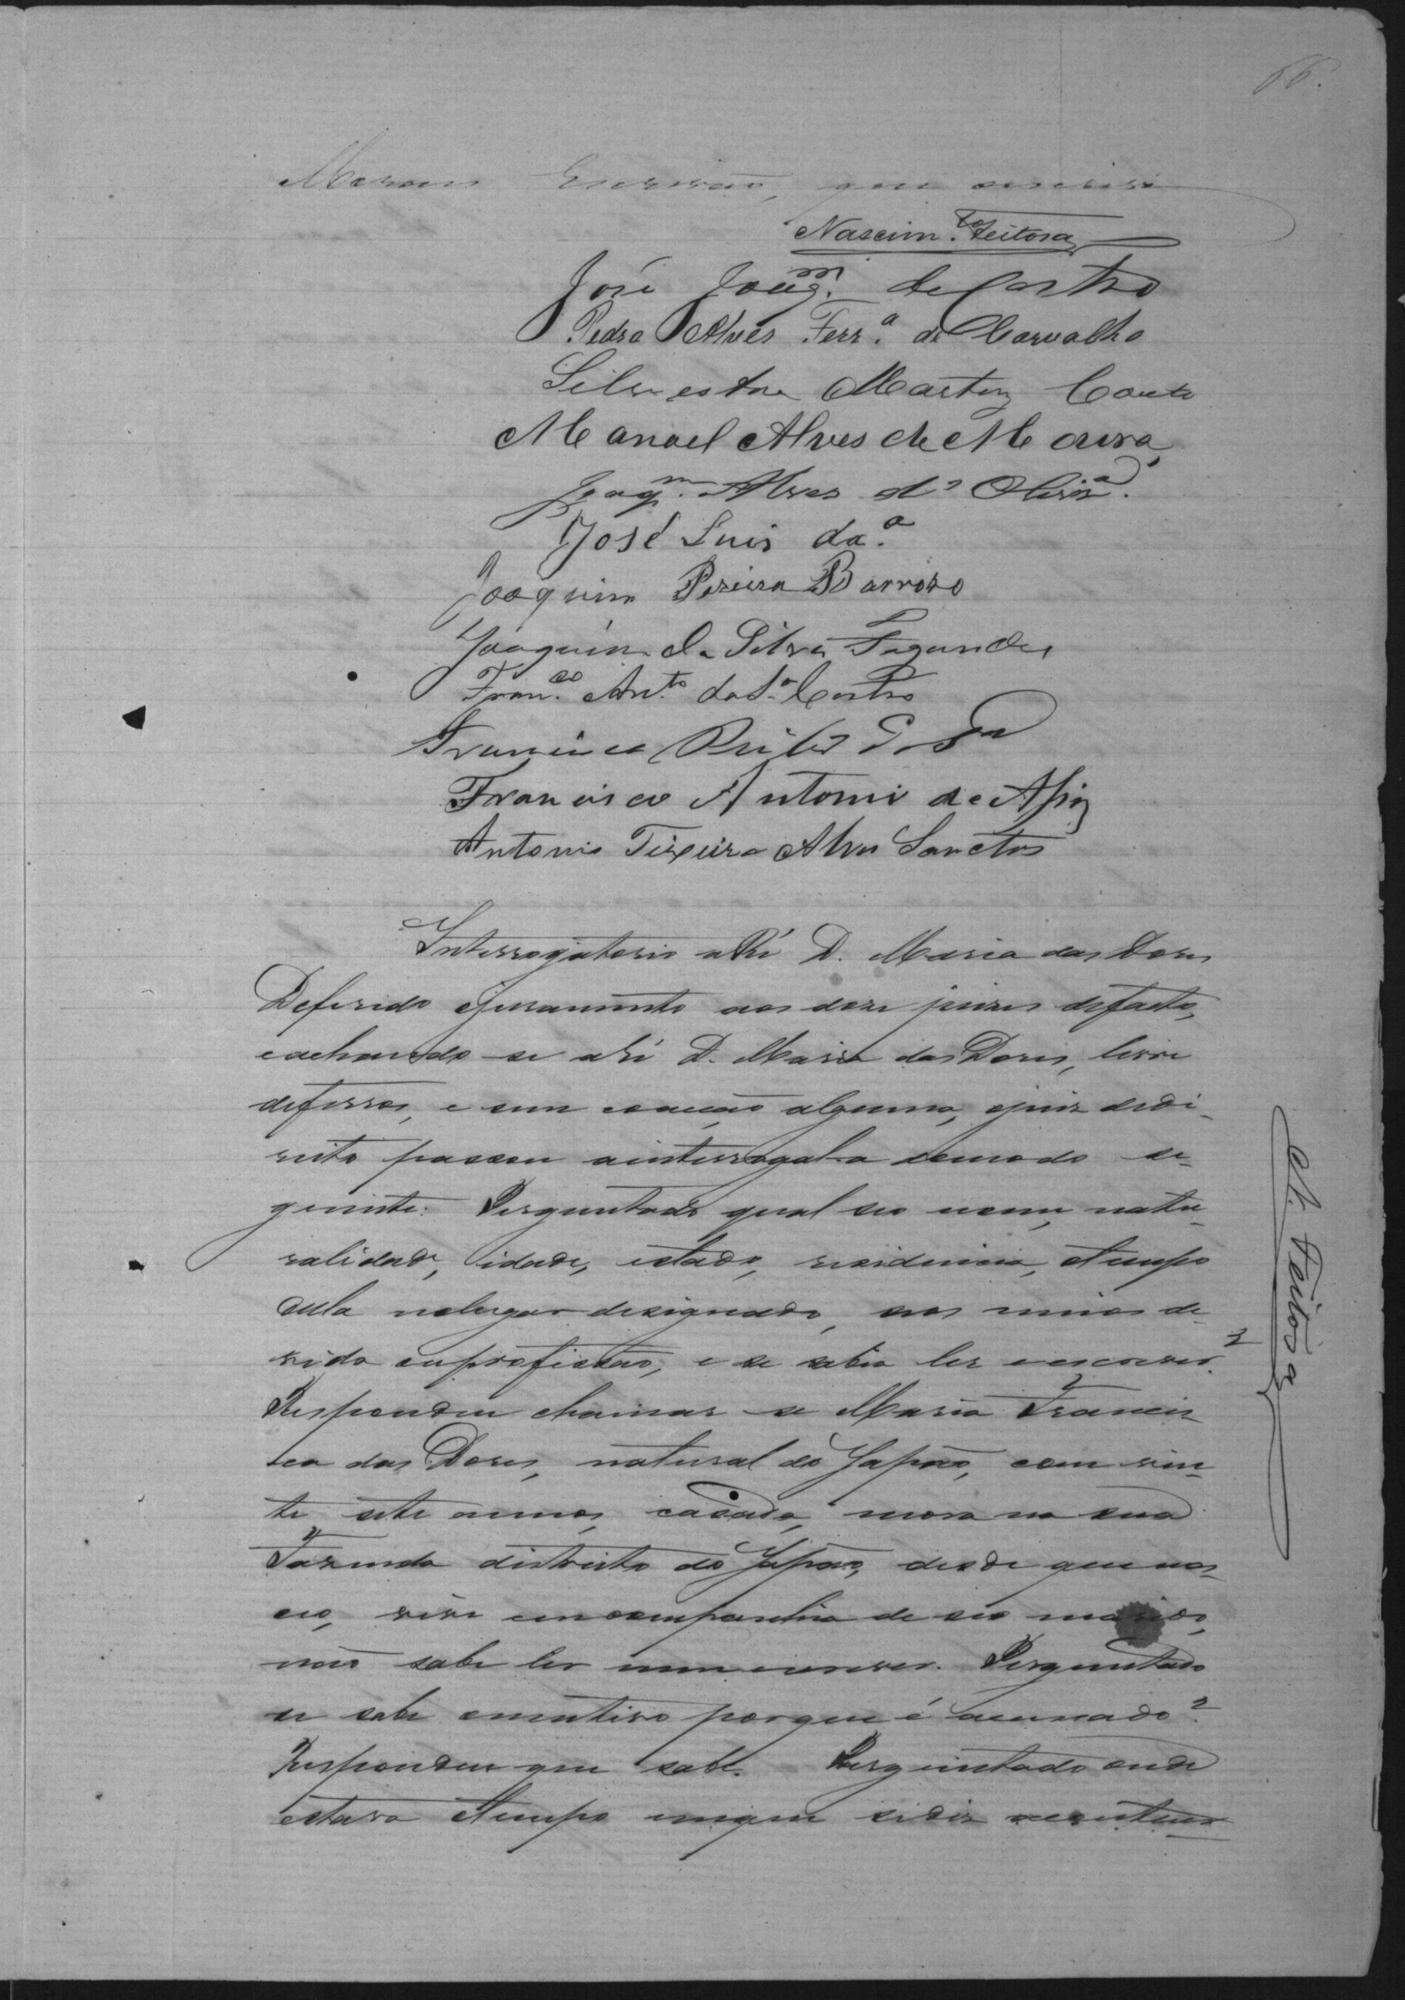 66.
Moraes Escrivão, que escrevi
Nascim.to Feitosa
José Joaq.m de Castro
Pedro Alves Ferr.a de Carvalho
Silvestre Martins Couto
Manoel Alves de Moura
Joaq.m Alves d' Olivr.a
José Luis da.a
Joaquim Pereira Barrozo
Joaquim da Silva Fagundes
Fran.co Ant.to da S.a Castro
Francisco
Francisco Antonio de Assiz
Antonio Teixeira Alves Sanctos
Interrogatorio a Ré D. Maria das Dores
Deferido ojuramento aos doze juizes defacto,
eachando-se aRé D. Maria das Dores, livre
deferros, e sem coacção alguma, ojuiz dedi-
reito passou ainterrogal-a domodo se-
guinte: Perguntado qual seo nome, natu-
ralidade, idade, estado, residencia, etempo
della nolugar designado, seos meios de-
vida euprofissão, e se sabia ler eescrever?
Respondeu chamar-se Maria Francis-
ca das Dores, natural do Japão, com vin-
te sete annos, casada, mora na sua
Fazenda districto do Japão, desde que nas-
ceo, vive emcompanhia de seo marido,
não sabe ler nem escrever. Perguntado
se sabe omotivo porque é accusado?
Respondeu que sabe. Perguntado onde
estava etempo emque sediz
N. Feitosa